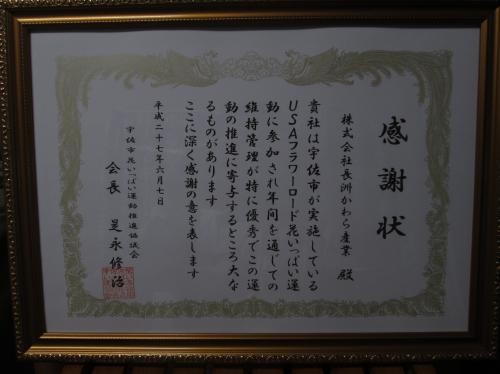 感謝状
株式会社長洲かわら産業 殿
貴社は宇佐市が実施している
USAフラワーロード花いっぱい運
動に参加され年間を通じての
維持管理が特に優秀でこの運
動の推進に寄与するところ大な
るものがあります
ここに深く感謝の意を表します
平成二十七年六月七日
宇佐市花いっぱい運動推進協議会
会長 是永修治